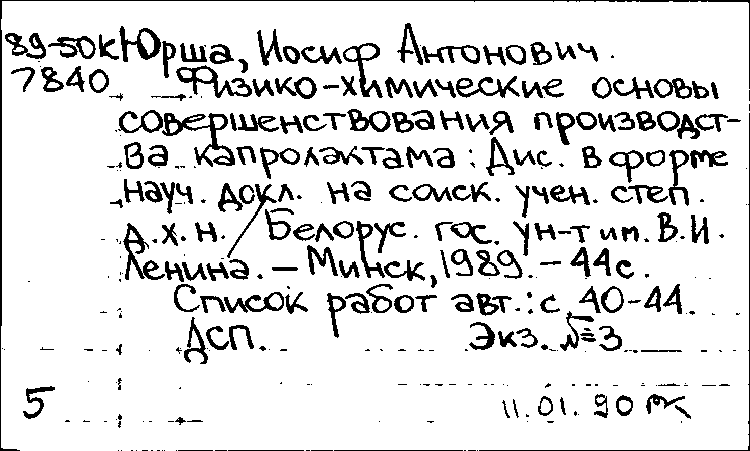 89-50к Юрша, Иосиф Антонович.
7840 Физико-химические основы
совершенствования производст-
ва капролактама: Дис. в форме
науч. докл. на соиск. учен. степ.
д.х.н. / Белорус. гос. ун-т им. В.И.
Ленина. – Минск, 1989. – 44с.
Список работ авт.: с. 40-44.
ДСП. Экз. №3
5 11.01.90